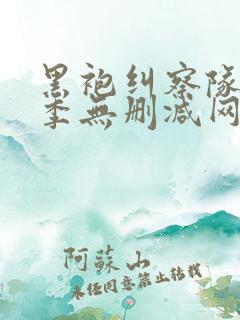 黑袍纠察队
季無删减网
阿蘇山
未经同意禁止转载